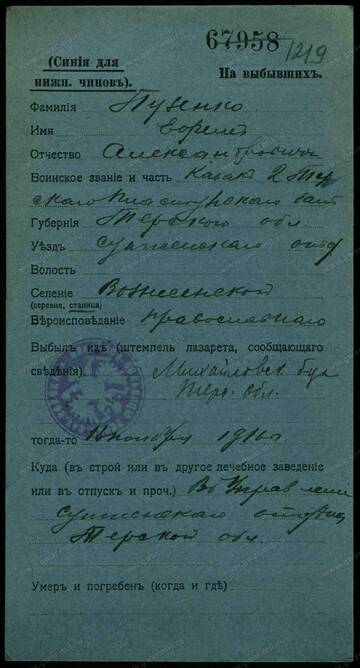 67958 1219
(Синія для
нижн. чиновъ).
На выбывшихъ.
Фамилія Пузенко
Имя Ефремъ
Отчество Александровичъ
Воинское званіе и часть Казакъ 2 Тер
скаго Пластунскаго бат
Губернія Терской обл.
Уѣздъ Сунженскаго отд
Волость
Селеніе Вознесенской
(деревня, станица)
Вѣроисповѣданіе православнаго
Выбылъ изъ (штемпель лазарета, сообщающаго
свѣдѣнія) Михайловск.
Терс. обл.
тогда-то 16 ноября 1916 г.
Куда (въ строй или въ другое лечебное заведеніе
или въ отпускъ и проч.) Въ Управленіе
Сунженскаго отдѣла
Терской обл.
Умеръ и погребенъ (когда и гдѣ)